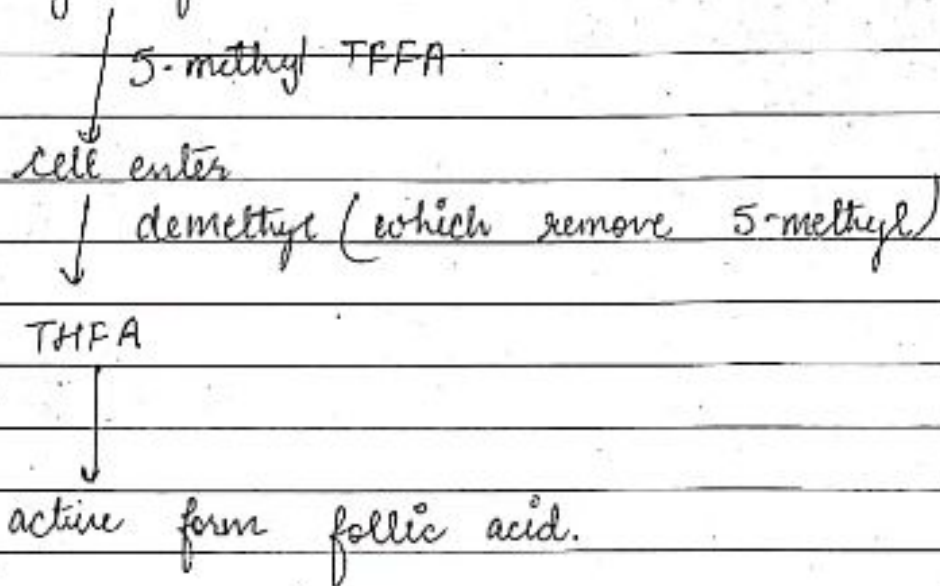 5-methyl TFFA
cell enter
demethyl (which remove 5-methyl)
THFA
active form follic acid.